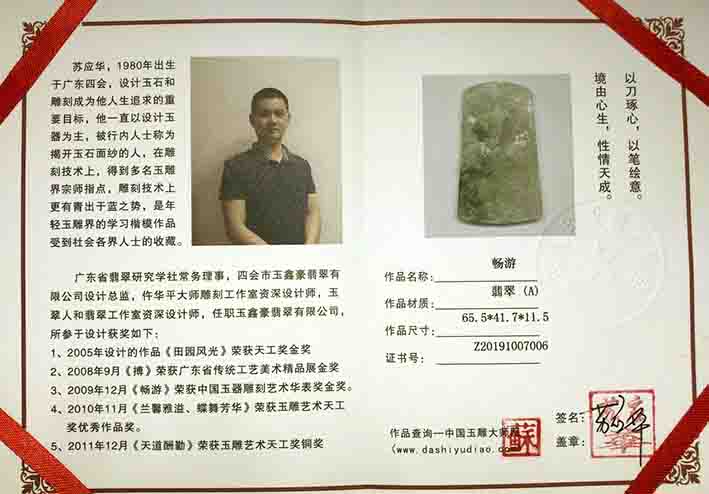 苏应华，1980年出生
于广东四会，设计玉石和
雕刻成为他人生追求的重
要目标，他一直以设计玉
器为主，被行内人士称为
揭开玉石面纱的人，在雕
刻技术上，得到多名玉雕
界宗师指点，雕刻技术上
更有青出于蓝之势，是年
轻玉雕界的学习楷模作品
受到社会各界人士的收藏。
广东省翡翠研究学社常务理事，四会市玉鑫豪翡翠有
限公司设计总监，仵华平大师雕刻工作室资深设计师，玉
翠人和翡翠工作室资深设计师，任职玉鑫豪翡翠有限公司，
所参于设计获奖如下：
1、2005年设计的作品《田园风光》荣获天工奖金奖
2、2008年9月《搏》荣获广东省传统工艺美术精品展金奖
3、2009年12月《畅游》荣获中国玉器雕刻艺术华表奖金奖。
4、2010年11月《兰馨雅溢、蝶舞芳华》荣获玉雕艺术天工
奖优秀作品奖。
5、2011年12月《天道酬勤》荣获玉雕艺术天工奖铜奖
以刀琢心，以笔绘意。
境由心生，性情天成。
作品名称：畅游
作品材质：翡翠 (A)
作品尺寸：65.5*41.7*11.5
证书号：Z20191007006
作品查询一中国玉雕大师网
(www.dashiyudiao.com)
蘇
签名：
盖章：